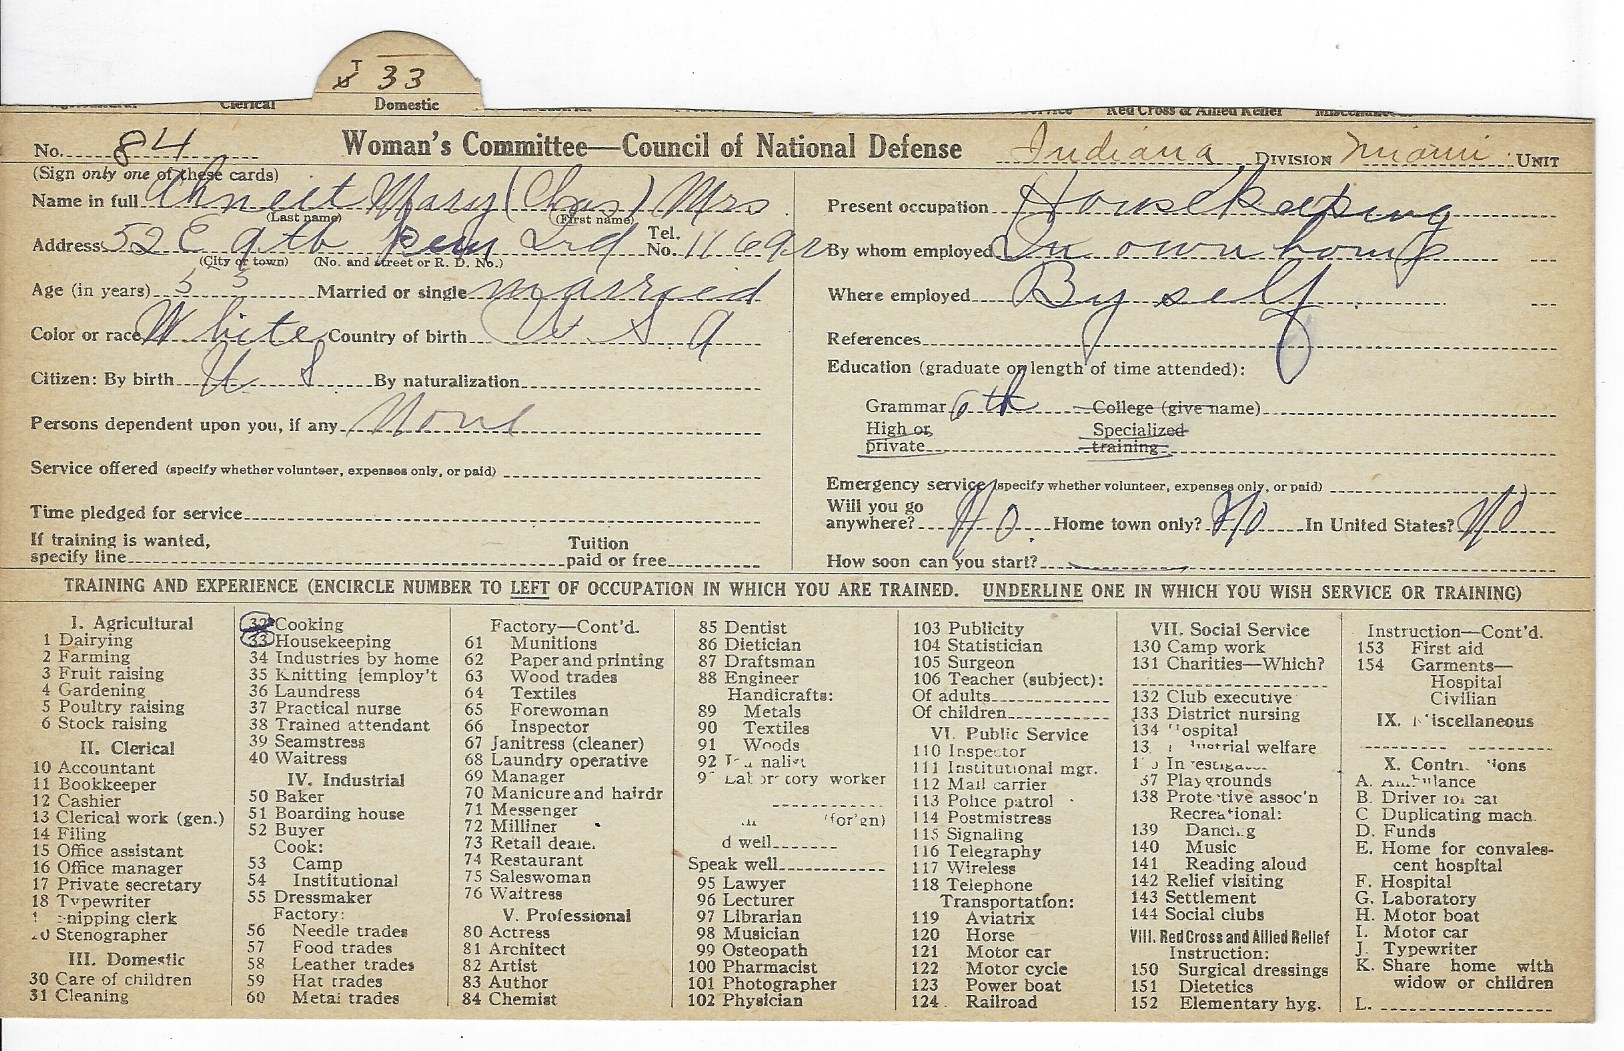 T 33
Clerical Domestic Red Cross & Allied Relief
No. 84 Woman's Committee—Council of National Defense Indiana DIVISION Miami UNIT
(Sign only one of these cards)
Name in full Ahneit Mary (Chas) Mrs
(Last name) (First name)
Address 52 E 9th Peru Ind Tel. No. 11692
(City or town) (No. and street or R. D. No.)
Age (in years) 53 Married or single married
Color or race White Country of birth U S A
Citizen: By birth U S By naturalization
Persons dependent upon you, if any None
Service offered (specify whether volunteer, expenses only, or paid)
Time pledged for service
If training is wanted, specify line Tuition paid or free
Present occupation Housekeeping
By whom employed In own home
Where employed By self
References
Education (graduate or length of time attended):
Grammar 6th College (give name)
High or private Specialized training
Emergency service (specify whether volunteer, expenses only, or paid)
Will you go anywhere? No Home town only? No In United States? No
How soon can you start?
TRAINING AND EXPERIENCE (ENCIRCLE NUMBER TO LEFT OF OCCUPATION IN WHICH YOU ARE TRAINED. UNDERLINE ONE IN WHICH YOU WISH SERVICE OR TRAINING)
I. Agricultural
1 Dairying
2 Farming
3 Fruit raising
4 Gardening
5 Poultry raising
6 Stock raising
II. Clerical
10 Accountant
11 Bookkeeper
12 Cashier
13 Clerical work (gen.)
14 Filing
15 Office assistant
16 Office manager
17 Private secretary
18 Typewriter
clerk
Stenographer
III. Domestic
30 Care of children
31 Cleaning
32 Cooking
33 Housekeeping
34 Industries by home
35 Knitting [employ't
36 Laundress
37 Practical nurse
38 Trained attendant
39 Seamstress
40 Waitress
IV. Industrial
50 Baker
51 Boarding house
52 Buyer
Cook:
53 Camp
54 Institutional
55 Dressmaker
Factory:
56 Needle trades
57 Food trades
58 Leather trades
59 Hat trades
60 Metal trades
Factory—Cont'd.
61 Munitions
62 Paper and printing
63 Wood trades
64 Textiles
65 Forewoman
66 Inspector
67 Janitress (cleaner)
68 Laundry operative
69 Manager
70 Manicure and hairdr
71 Messenger
72 Milliner
73 Retail deale.
74 Restaurant
75 Saleswoman
76 Waitress
V. Professional
80 Actress
81 Architect
82 Artist
83 Author
84 Chemist
85 Dentist
86 Dietician
87 Draftsman
88 Engineer
Handicrafts:
89 Metals
90 Textiles
91 Woods
92
worker
well
Speak well
95 Lawyer
96 Lecturer
97 Librarian
98 Musician
99 Osteopath
100 Pharmacist
101 Photographer
102 Physician
103 Publicity
104 Statistician
105 Surgeon
106 Teacher (subject):
Of adults
Of children
VI. Public Service
110 Inspector
111 Institutional mgr.
112 Mail carrier
113 Police patrol
114 Postmistress
115 Signaling
116 Telegraphy
117 Wireless
118 Telephone
Transportation:
119 Aviatrix
120 Horse
121 Motor car
122 Motor cycle
123 Power boat
124 Railroad
VII. Social Service
130 Camp work
131 Charities—Which?
132 Club executive
133 District nursing
134
welfare
Playgrounds
138 Protective assoc'n
Recreational:
139 Dancing
140 Music
141 Reading aloud
142 Relief visiting
143 Settlement
144 Social clubs
VIII. Red Cross and Allied Relief
Instruction:
150 Surgical dressings
151 Dietetics
152 Elementary hyg.
Instruction—Cont'd.
153 First aid
154 Garments—
Hospital
Civilian
IX. Miscellaneous
X.
A. Ambulance
B. Driver for car
C Duplicating mach.
D. Funds
E. Home for convales-
cent hospital
F. Hospital
G. Laboratory
H. Motor boat
I. Motor car
J. Typewriter
K. Share home with
widow or children
L.